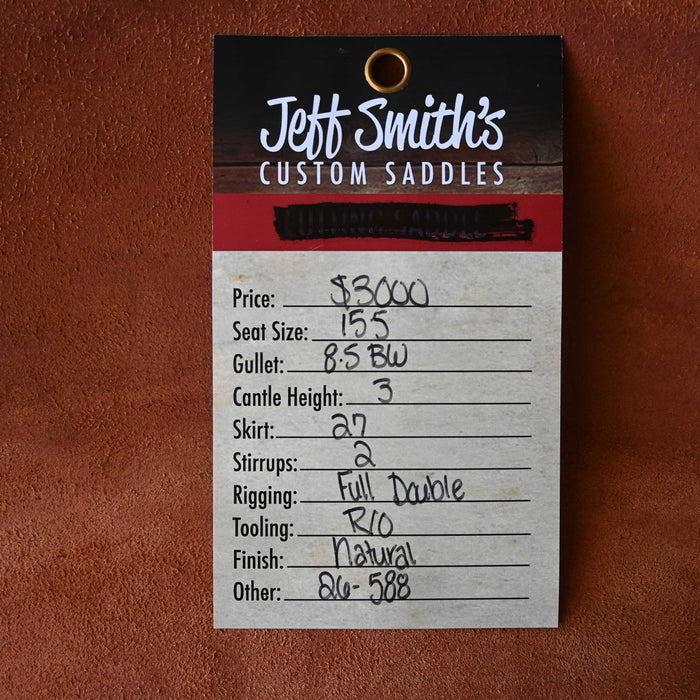 Jeff Smith's
CUSTOM SADDLES
CUTTING SADDLE
Price: $3000
Seat Size: 155
Gullet: 8.5 BW
Cantle Height: 3
Skirt: 27
Stirrups: 2
Rigging: Full Double
Tooling: R10
Finish: Natural
Other: 26-588